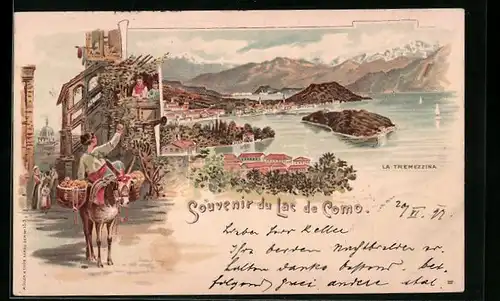 LA TREMEZZINA
Souvenir du Lac de Como.
20/XI. 97
Lieber Herr Keller
Ihre beiden Nachtbilder er-
halten danke bestens. bei-
folgend zwei andere